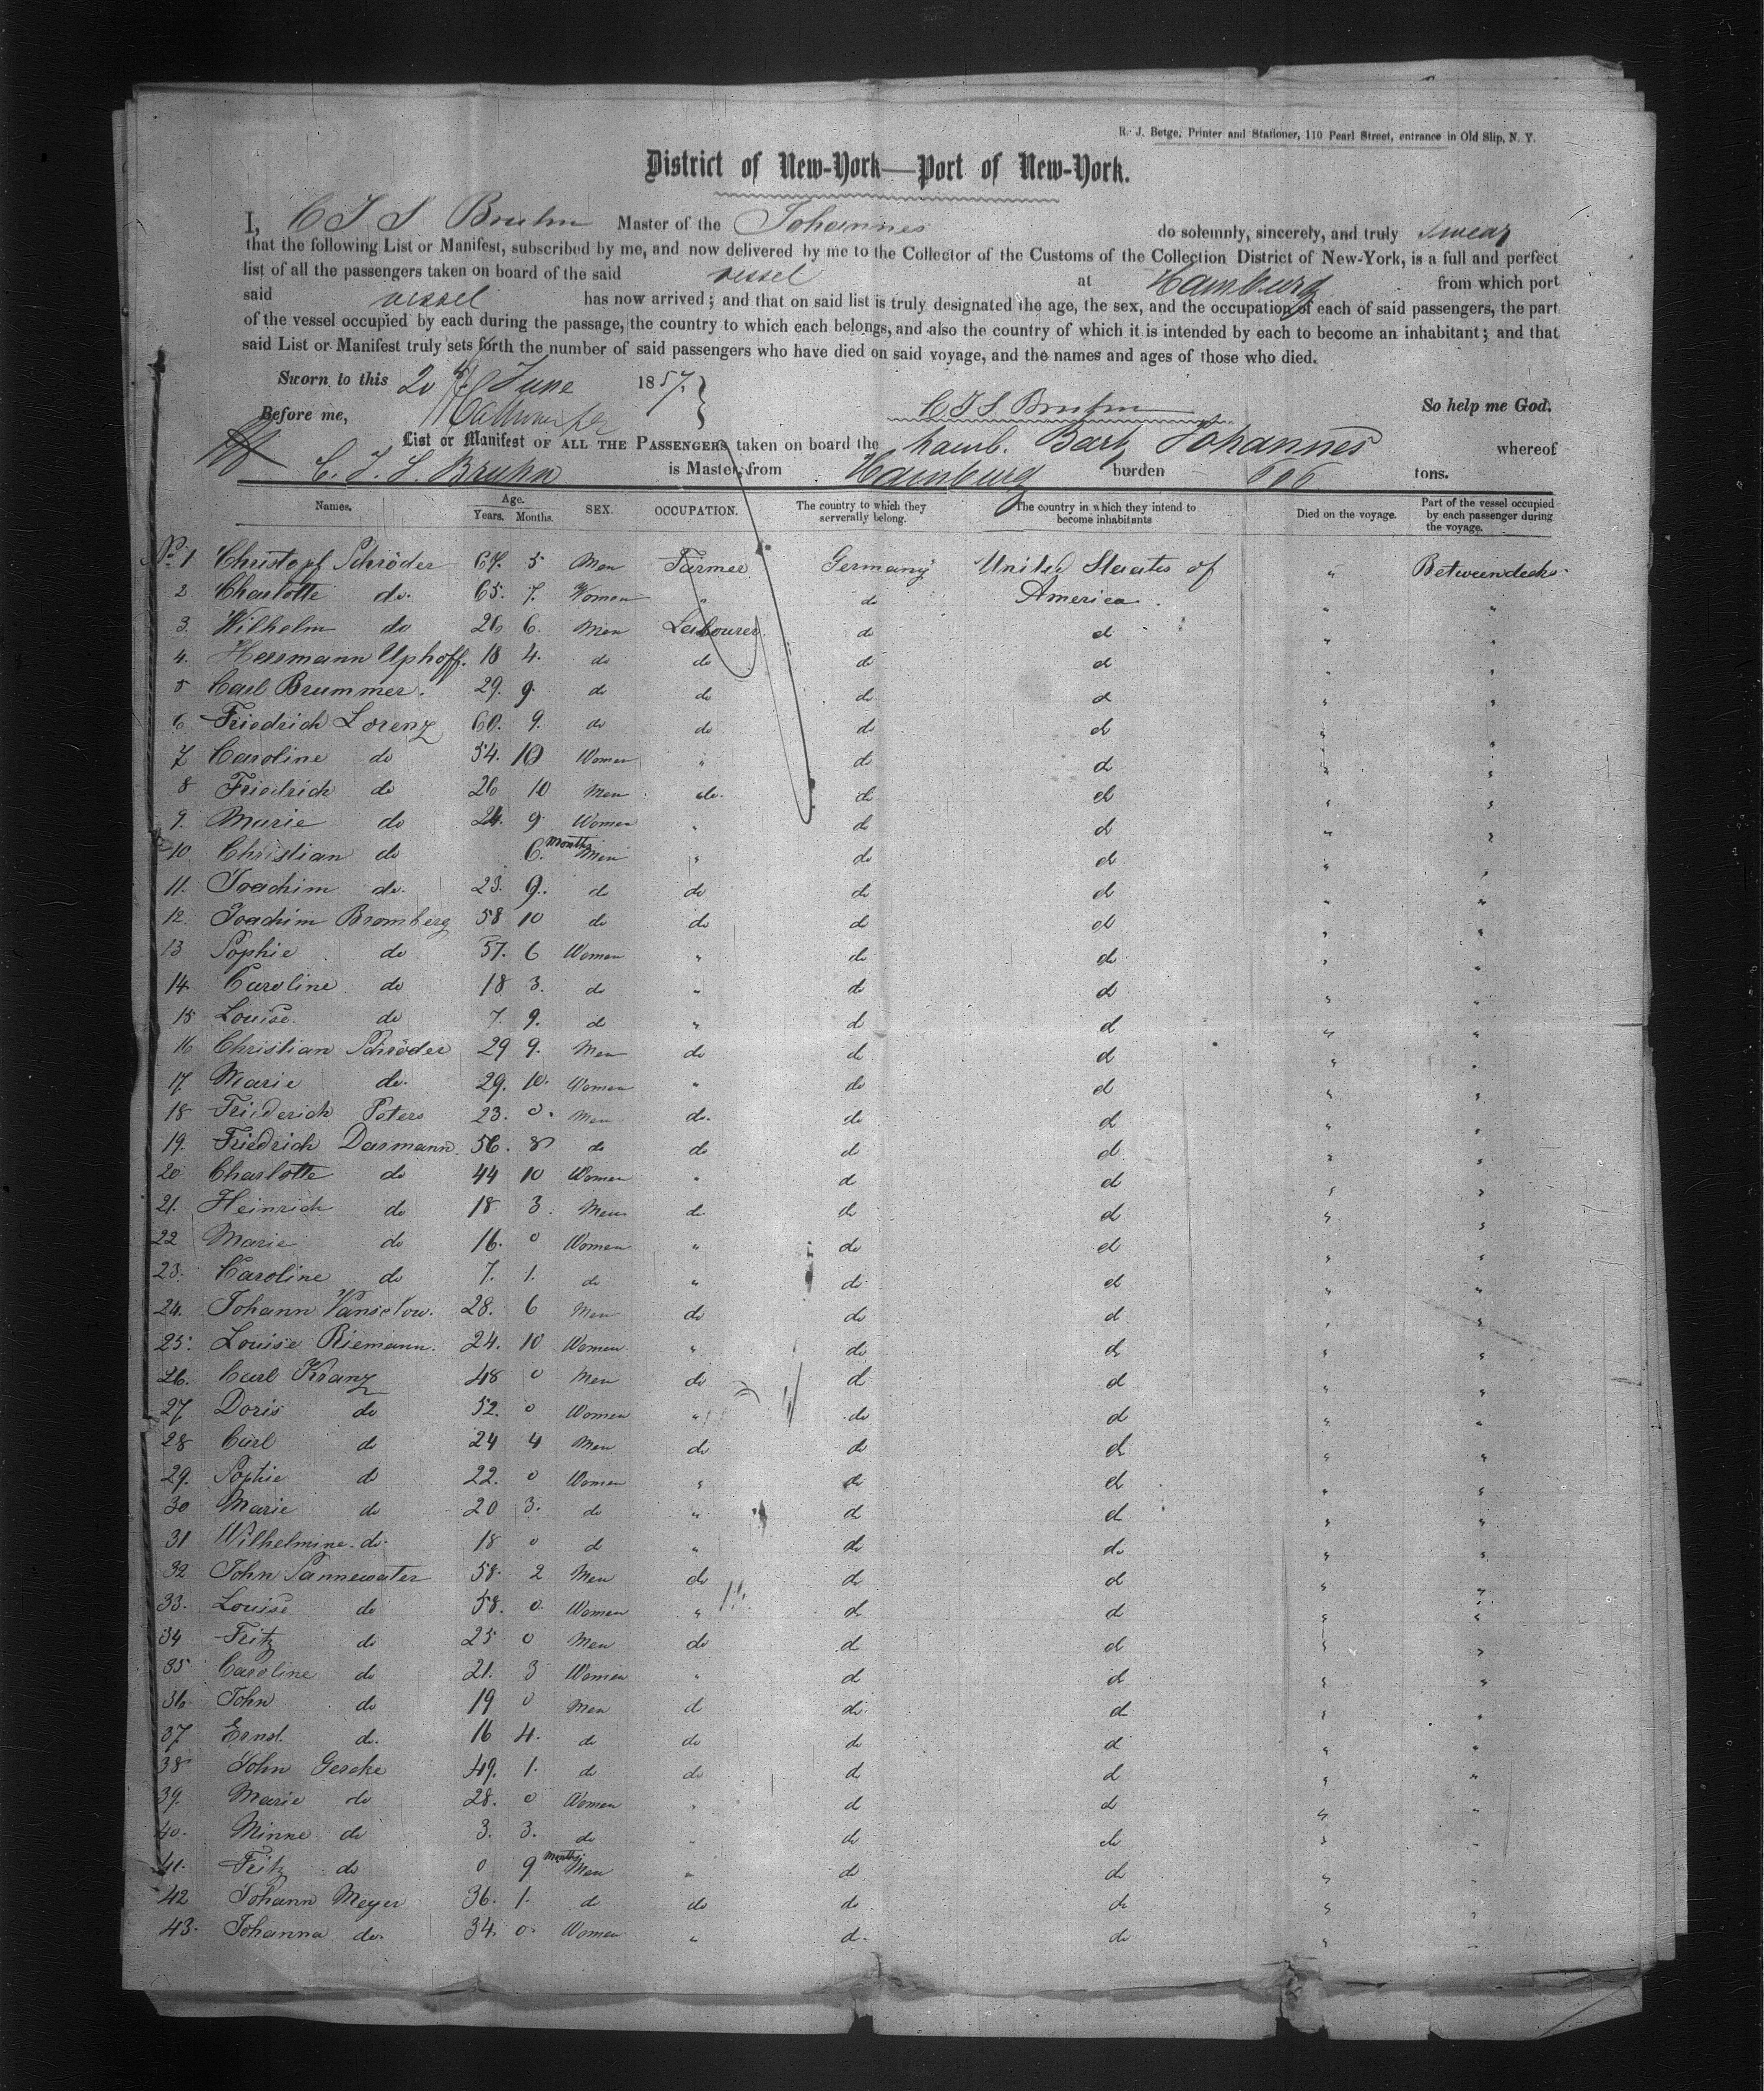 R. J. Betge, Printer and Stationer, 110 Pearl Street, entrance in Old Slip, N. Y.
District of New-York—Port of New-York.
I, C J S Bruhn Master of the Johannes do solemnly, sincerely, and truly swear
that the following List or Manifest, subscribed by me, and now delivered by me to the Collector of the Customs of the Collection District of New-York, is a full and perfect
list of all the passengers taken on board of the said vessel at Hamburg from which port
said vessel has now arrived; and that on said list is truly designated the age, the sex, and the occupation of each of said passengers, the part
of the vessel occupied by each during the passage, the country to which each belongs, and also the country of which it is intended by each to become an inhabitant; and that
said List or Manifest truly sets forth the number of said passengers who have died on said voyage, and the names and ages of those who died.
Sworn to this 20 June 1857.
Before me, C J S Bruhn So help me God.
List or Manifest OF ALL THE PASSENGERS taken on board the hamb. Bark Johannes whereof
C. J. S. Bruhn is Master, from Hamburg burden 606 tons.
Names. Age. Years. Months. SEX. OCCUPATION. The country to which they serverally belong. The country in which they intend to become inhabitants Died on the voyage. Part of the vessel occupied by each passenger during the voyage.
No. 1 Christopf Schröder 67. 5 Men Farmer Germany United Staates of " Betweendecks
2 Charlotte do. 65. 7. Women " do America. " "
3. Wilhelm do 26 6. Men Labourer do d " "
4. Herrmann Uphoff. 18 4. do do do d " "
5 Carl Brummer. 29. 9. do do do d " "
6 Friedrich Lorenz 60. 9. do do do d " "
7 Caroline do 54. 10 Women " do d " "
8 Friedrich do 26 10 Men do. do d " "
9. Marie do 24. 9 Women " do d " "
10 Christian do 6. Months Men " do d " "
11. Joachim do. 23. 9. d do do d " "
12. Joachim Bromberg 58 10 do do do d " "
13 Sophie do 57. 6 Women " do d " "
14 Caroline do 18 3. do " do d " "
15 Louise. do 7. 9. d " d d " "
16 Christian Schröder 29 9. Men do do d " "
17. Marie do. 29. 10. Women " do d " "
18 Friederich Peters 23. 0. Men do. do d " "
19. Friedrich Dasmann. 56. 8 do do d d " "
20 Charlotte do 44 10 Women " d d " "
21. Heinrich do 18 3. Men do. do d " "
22 Marie do 16. 0 Women " do d " "
23. Caroline do 7. 1. do " do d " "
24. Johann Vanselow. 28. 6 Men do do d " "
25. Louise Riemann. 24. 10 Women " do d " "
26. Carl Kranz 48 0 Men do d d " "
27 Doris do 52. 0 Women " do d " "
28 Carl do 24 4 Men do do d " "
29. Sophie do 22. 0 Women " do d " "
30 Marie do 20 3. do " d d " "
31 Wilhelmine do. 18 0 d " do do " "
32 John Pannewater 58. 2 Men do do d " "
33. Louise do 58. 0. Women " d d " "
34 Fritz do 25 0 Men do d d " "
35 Caroline do 21. 3 Women " d d " "
36 John do 19 0 Men d do. d " "
37. Ernst. d. 16 4. do do do d " "
38 John Gercke 49. 1. do do d d " "
39. Marie do 28. 0 Women " d d " "
40. Minne do 3. 3. do " do do " "
41. Fritz do 0 9 Months Men " do do " "
42 Johann Meyer 36. 1. do do do. do " "
43. Johanna do. 34. 0. Women " d. do " "